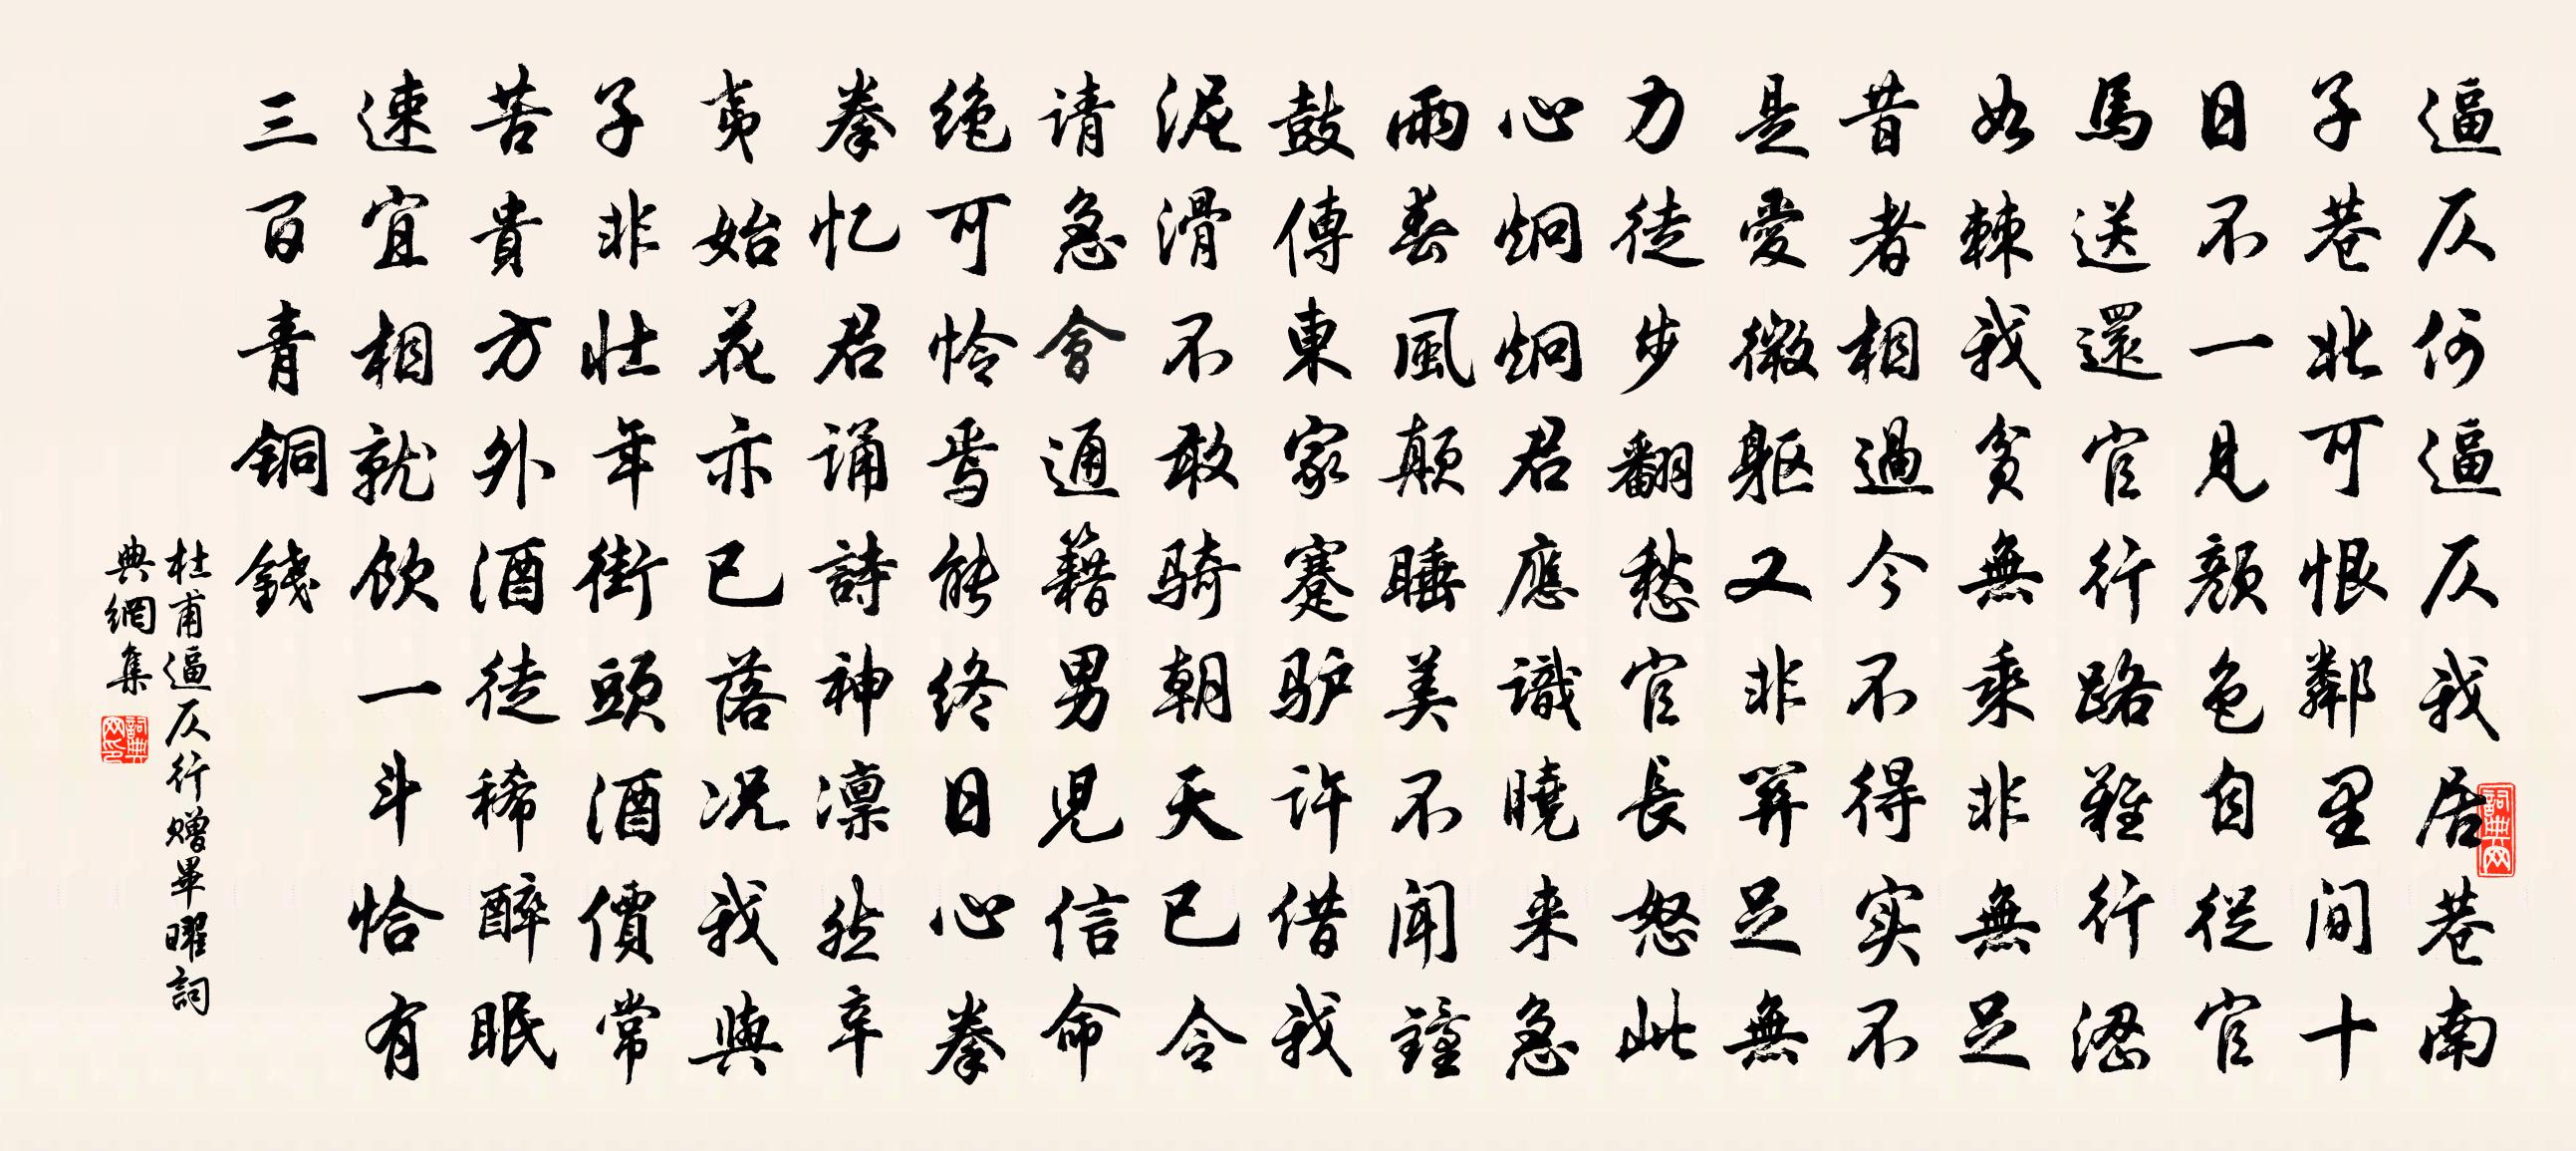 逼仄何逼仄我居巷南
子巷北可恨鄰里间十
日不一見颜色自從官
馬送還官行路難行澀
如棘我貧無乘非無足
昔者相過今不得实不
是愛微躯又非関足無
力徒步翻愁官長怒此
心炯炯君應識曉来急
雨春風颠睡美不闻鐘
鼓傳東家蹇驴许借我
泥滑不敢骑朝天已令
请急會通籍男児信命
绝可怜焉能终日心拳
拳忆君诵詩神凛然辛
夷始花亦已落况我與
子非壮年街頭酒價常
苦貴方外酒徒稀醉眠
速宜相就飲一斗恰有
三百青铜錢
杜甫逼仄行赠畢曜詞
典網集
詞典网
詞典网印